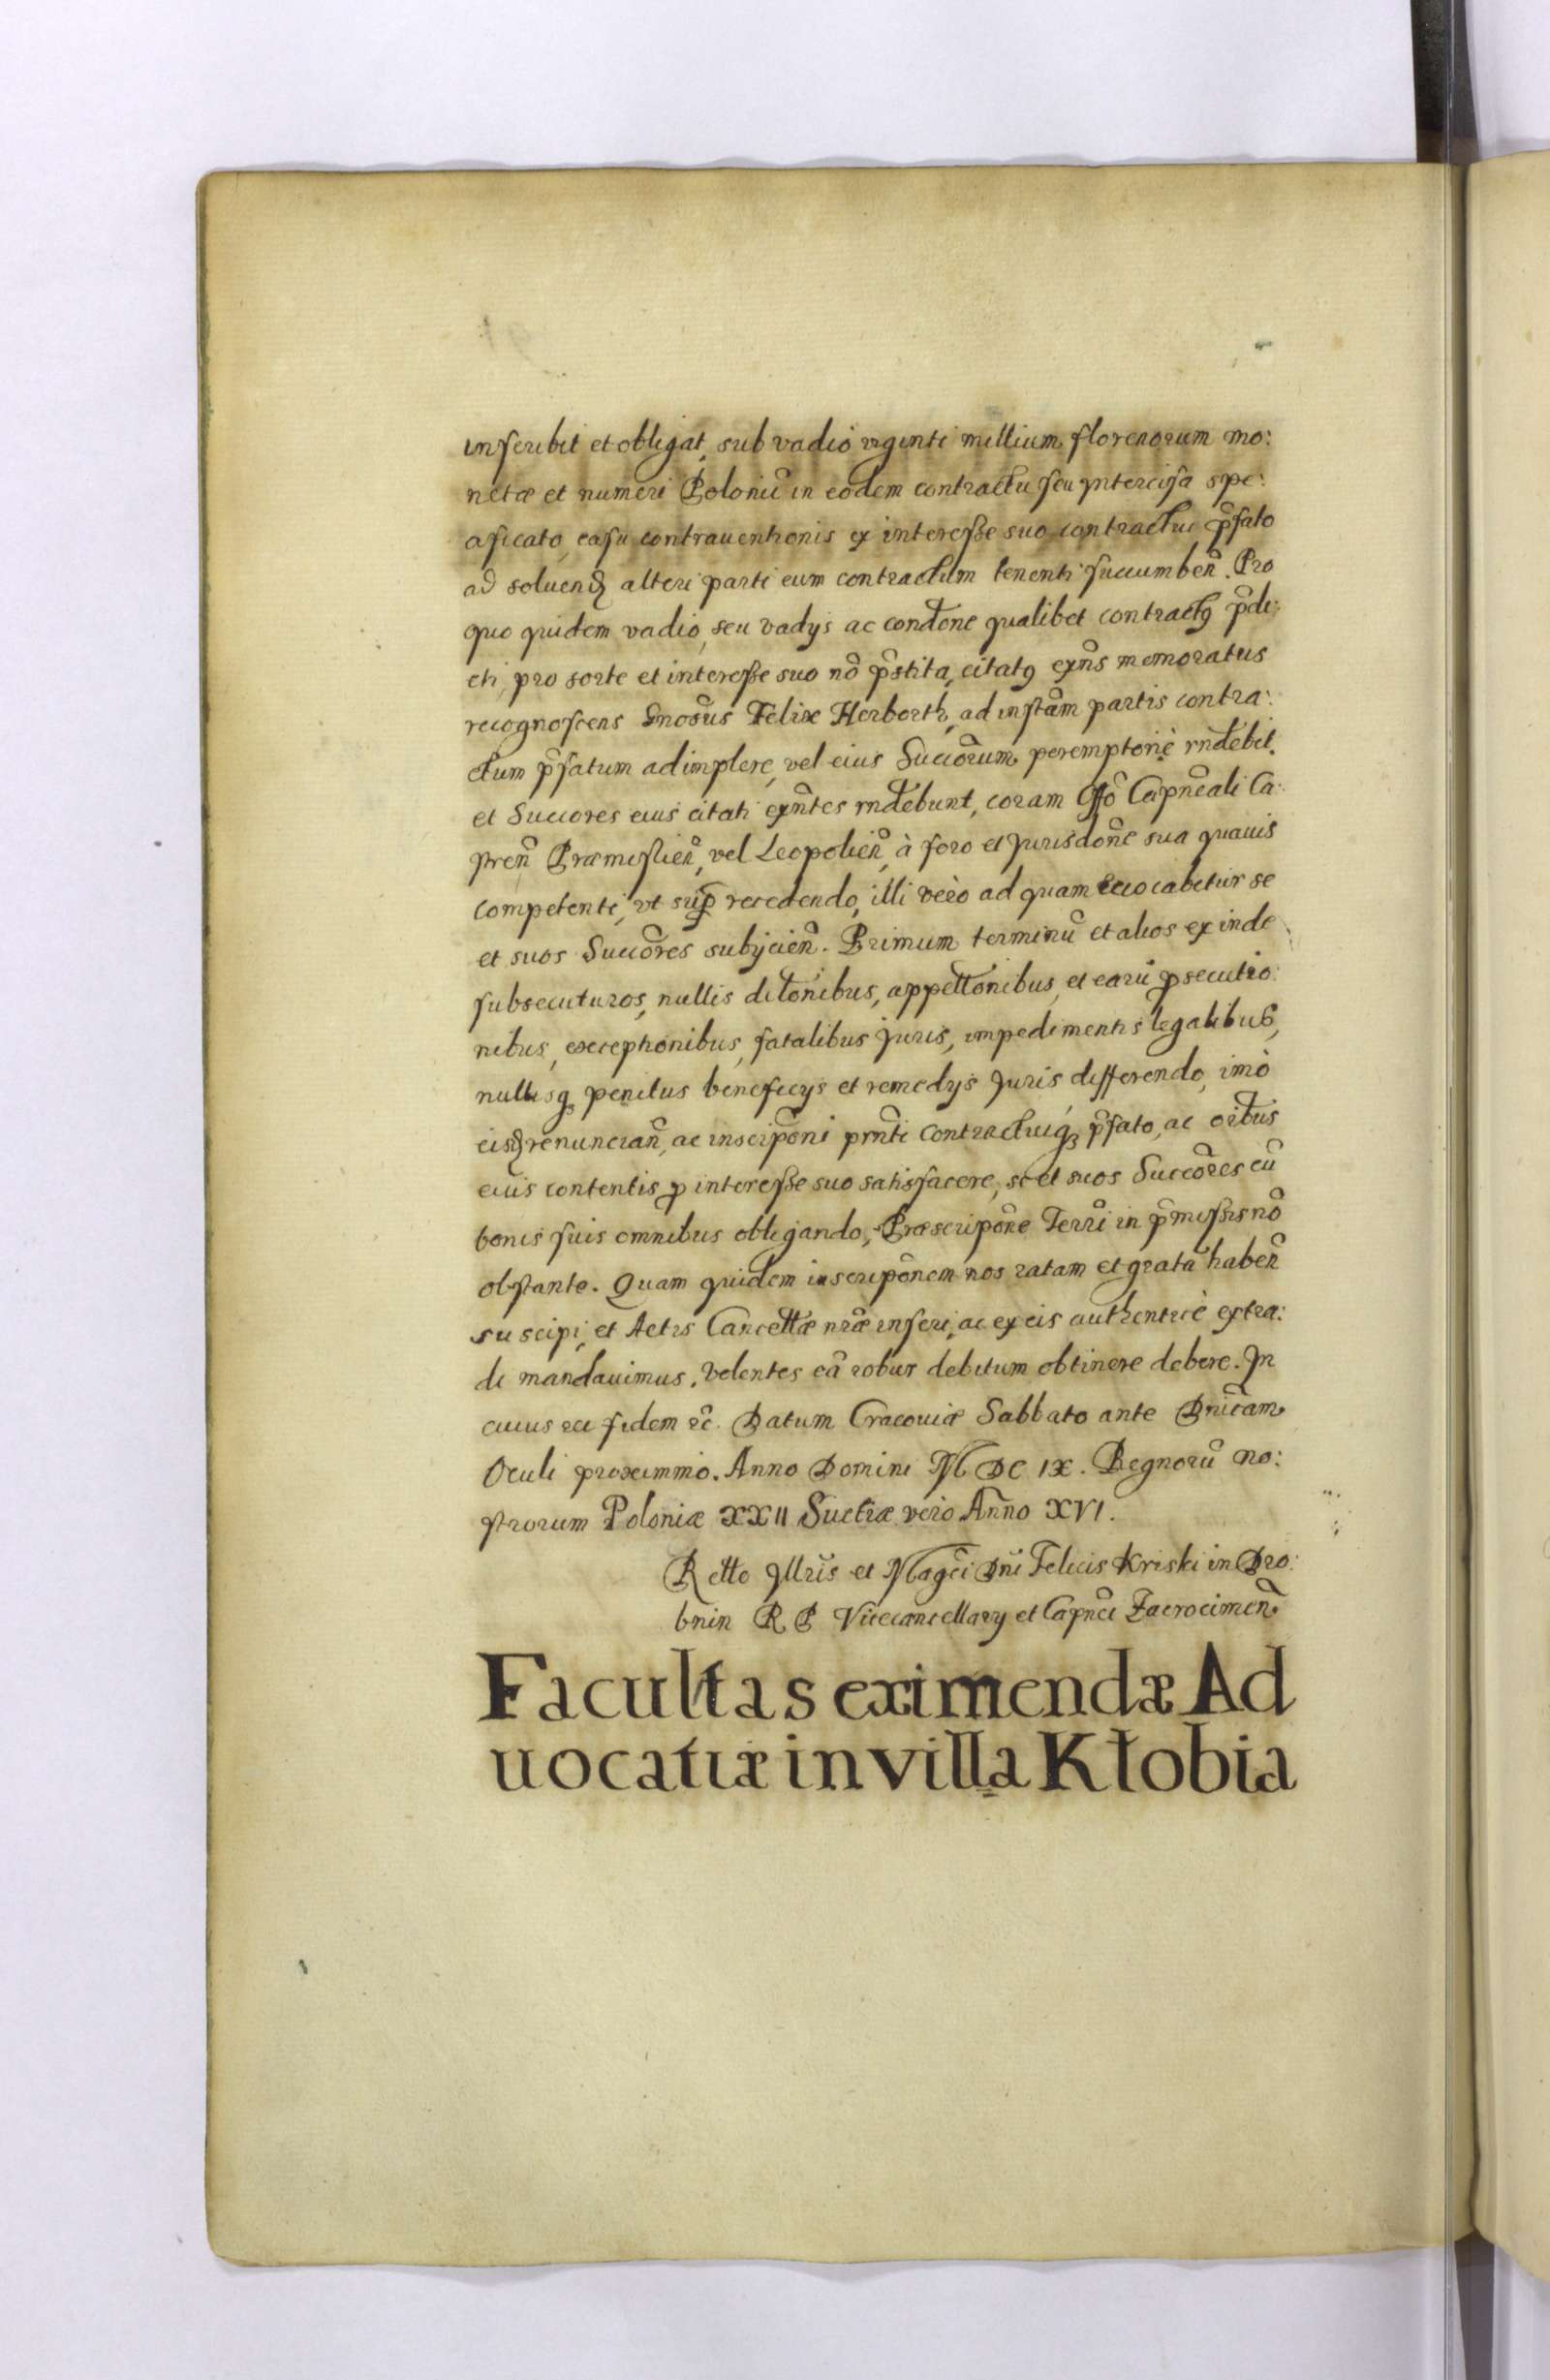 inscribit et obligat, sub vadio viginti millium florenorum mo:
netæ et numeri Poloniĉ in eodem contractu seu yntercisa spe:
cificato, casu contrauentionis ex interesse suo contractui p̃fato
ad soluend̃ alteri parti eum contractum tenenti succumben̂. Pro
quo quidem vadio, seu vadys ac condõne qualibet contractꝯ p̃di:
cti, pro sorte et interesse suo nõ p̃stita, citatꝯ exñs memoratus
recognoscens Gnosũs Felix Herborth, ad instãm partis contra:
ctum p̃fatum adimplere, vel eius Succõrum peremptoriè rñdebit.
et Succores eius citati exñtes rñdebunt, coram Offõ Capnẽali Ca:
stren̂ Præmislien̂, vel Leopolien̂, à foro et Jurisdõne sua quauis
competenti, vt sup̃ recedendo, illi verò ad quam euocabitur se
et suos Succõres subijcien̂. Primum terminũ et alios ex inde
subsecuturos, nullis dilõnibus, appellõnibus, et earũ ꝓsecutio:
nibus, exceptionibus, fatalibus Juris, impedimentis legalibus,
nullisqꝫ penitus beneficys et remedys Juris differendo, imò
eisd̃ renuncian̂, ac inscripõni prñti contractuiqꝫ p̃fato, ac oĩbus
eius contentis ꝓ interesse suo satisfacere, se et suos Succõres cũ
bonis suis omnibus obligando, Præscripõne Terrĩ in p̃missis nõ
obstante. Quam quidem inscripõnem nos ratam et gratã haben̂
suscipi, et Actis Cancellæ nr̃æ inseri, ac ex eis authenticè extra:
di mandauimus. Volentes eã robur debitum obtinere debere. In
cuius rei fidem ꝛc̃. Datum Cracouiæ Sabbato ante Dnĩcam
Oculi proximmo. Anno Domini M DC IX. Regnorũ no:
strorum Poloniæ XXII Suetiæ vero Anño XVI.
Rello Yllrĩs et Magcĩ Dnĩ Felicis Kriski in Dro:
bnin R P Vicecancellary et Capnẽi Zacrocimen̂.
Facultas eximendæ Ad
uocatiæ in villa Kłobia